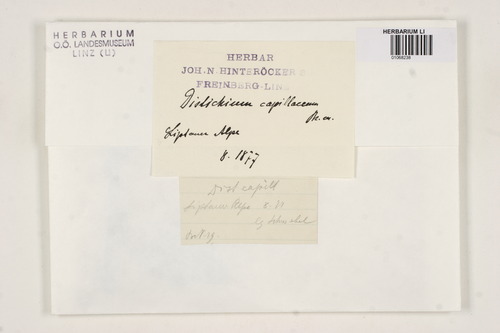 HERBARIUM
O.Ö. LANDESMUSEUM
LINZ (LI)
HERBARIUM LI
01068238
HERBAR
JOH. N. HINTERÖCKER
FREINBERG-LINZ
Distichium capillaceum
Liptauer Alpe
8. 1877
Dist capill
Liptauer Alpe 8.